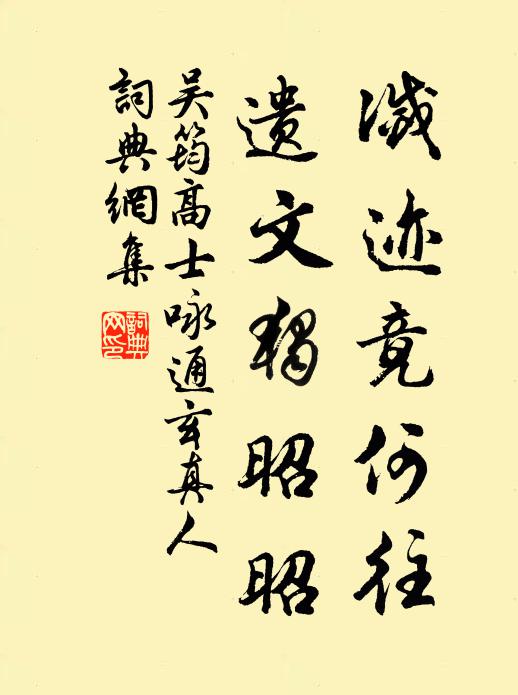 滅迹竟何往
遗文獨昭昭
吴筠高士咏通玄真人
詞典網集
詞典網印